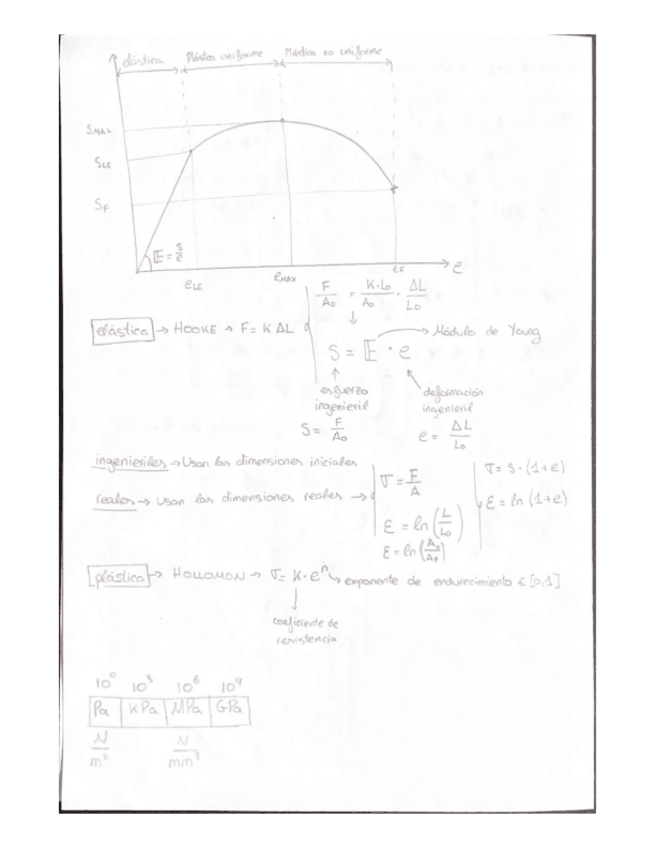 elástica Plástica uniforme Plástica no uniforme
S_MAX
S_LE
S_F
E = s/e
e_LE e_MAX e_F e
F/A₀ = K·L₀/A₀ · ΔL/L₀
elástica → HOOKE → F = K ΔL
S = E · e → Módulo de Young
esfuerzo ingenieril
S = F/A₀
deformación ingenieril
e = ΔL/L₀
ingenieriles → Usan las dimensiones iniciales
reales → Usan las dimensiones reales →
σ = F/A
ε = ln(L/L₀)
ε = ln(A₀/A_F)
σ = s·(1+e)
ε = ln(1+e)
plástica → HOLLOMON → σ = K·eⁿ → exponente de endurecimiento ∈ [0,1]
coeficiente de
resistencia
10⁰ 10³ 10⁶ 10⁹
Pa KPa MPa GPa
N/m² N/mm²